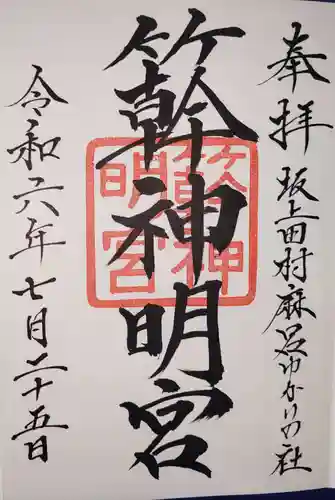 奉拝 坂上田村麻呂ゆかりの社
簳神明宮
簳神
明宮
令和六年七月二十五日